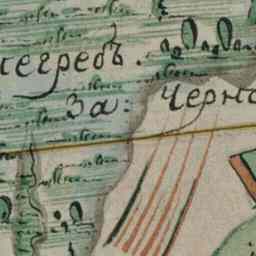 негребъ.
За: Черно